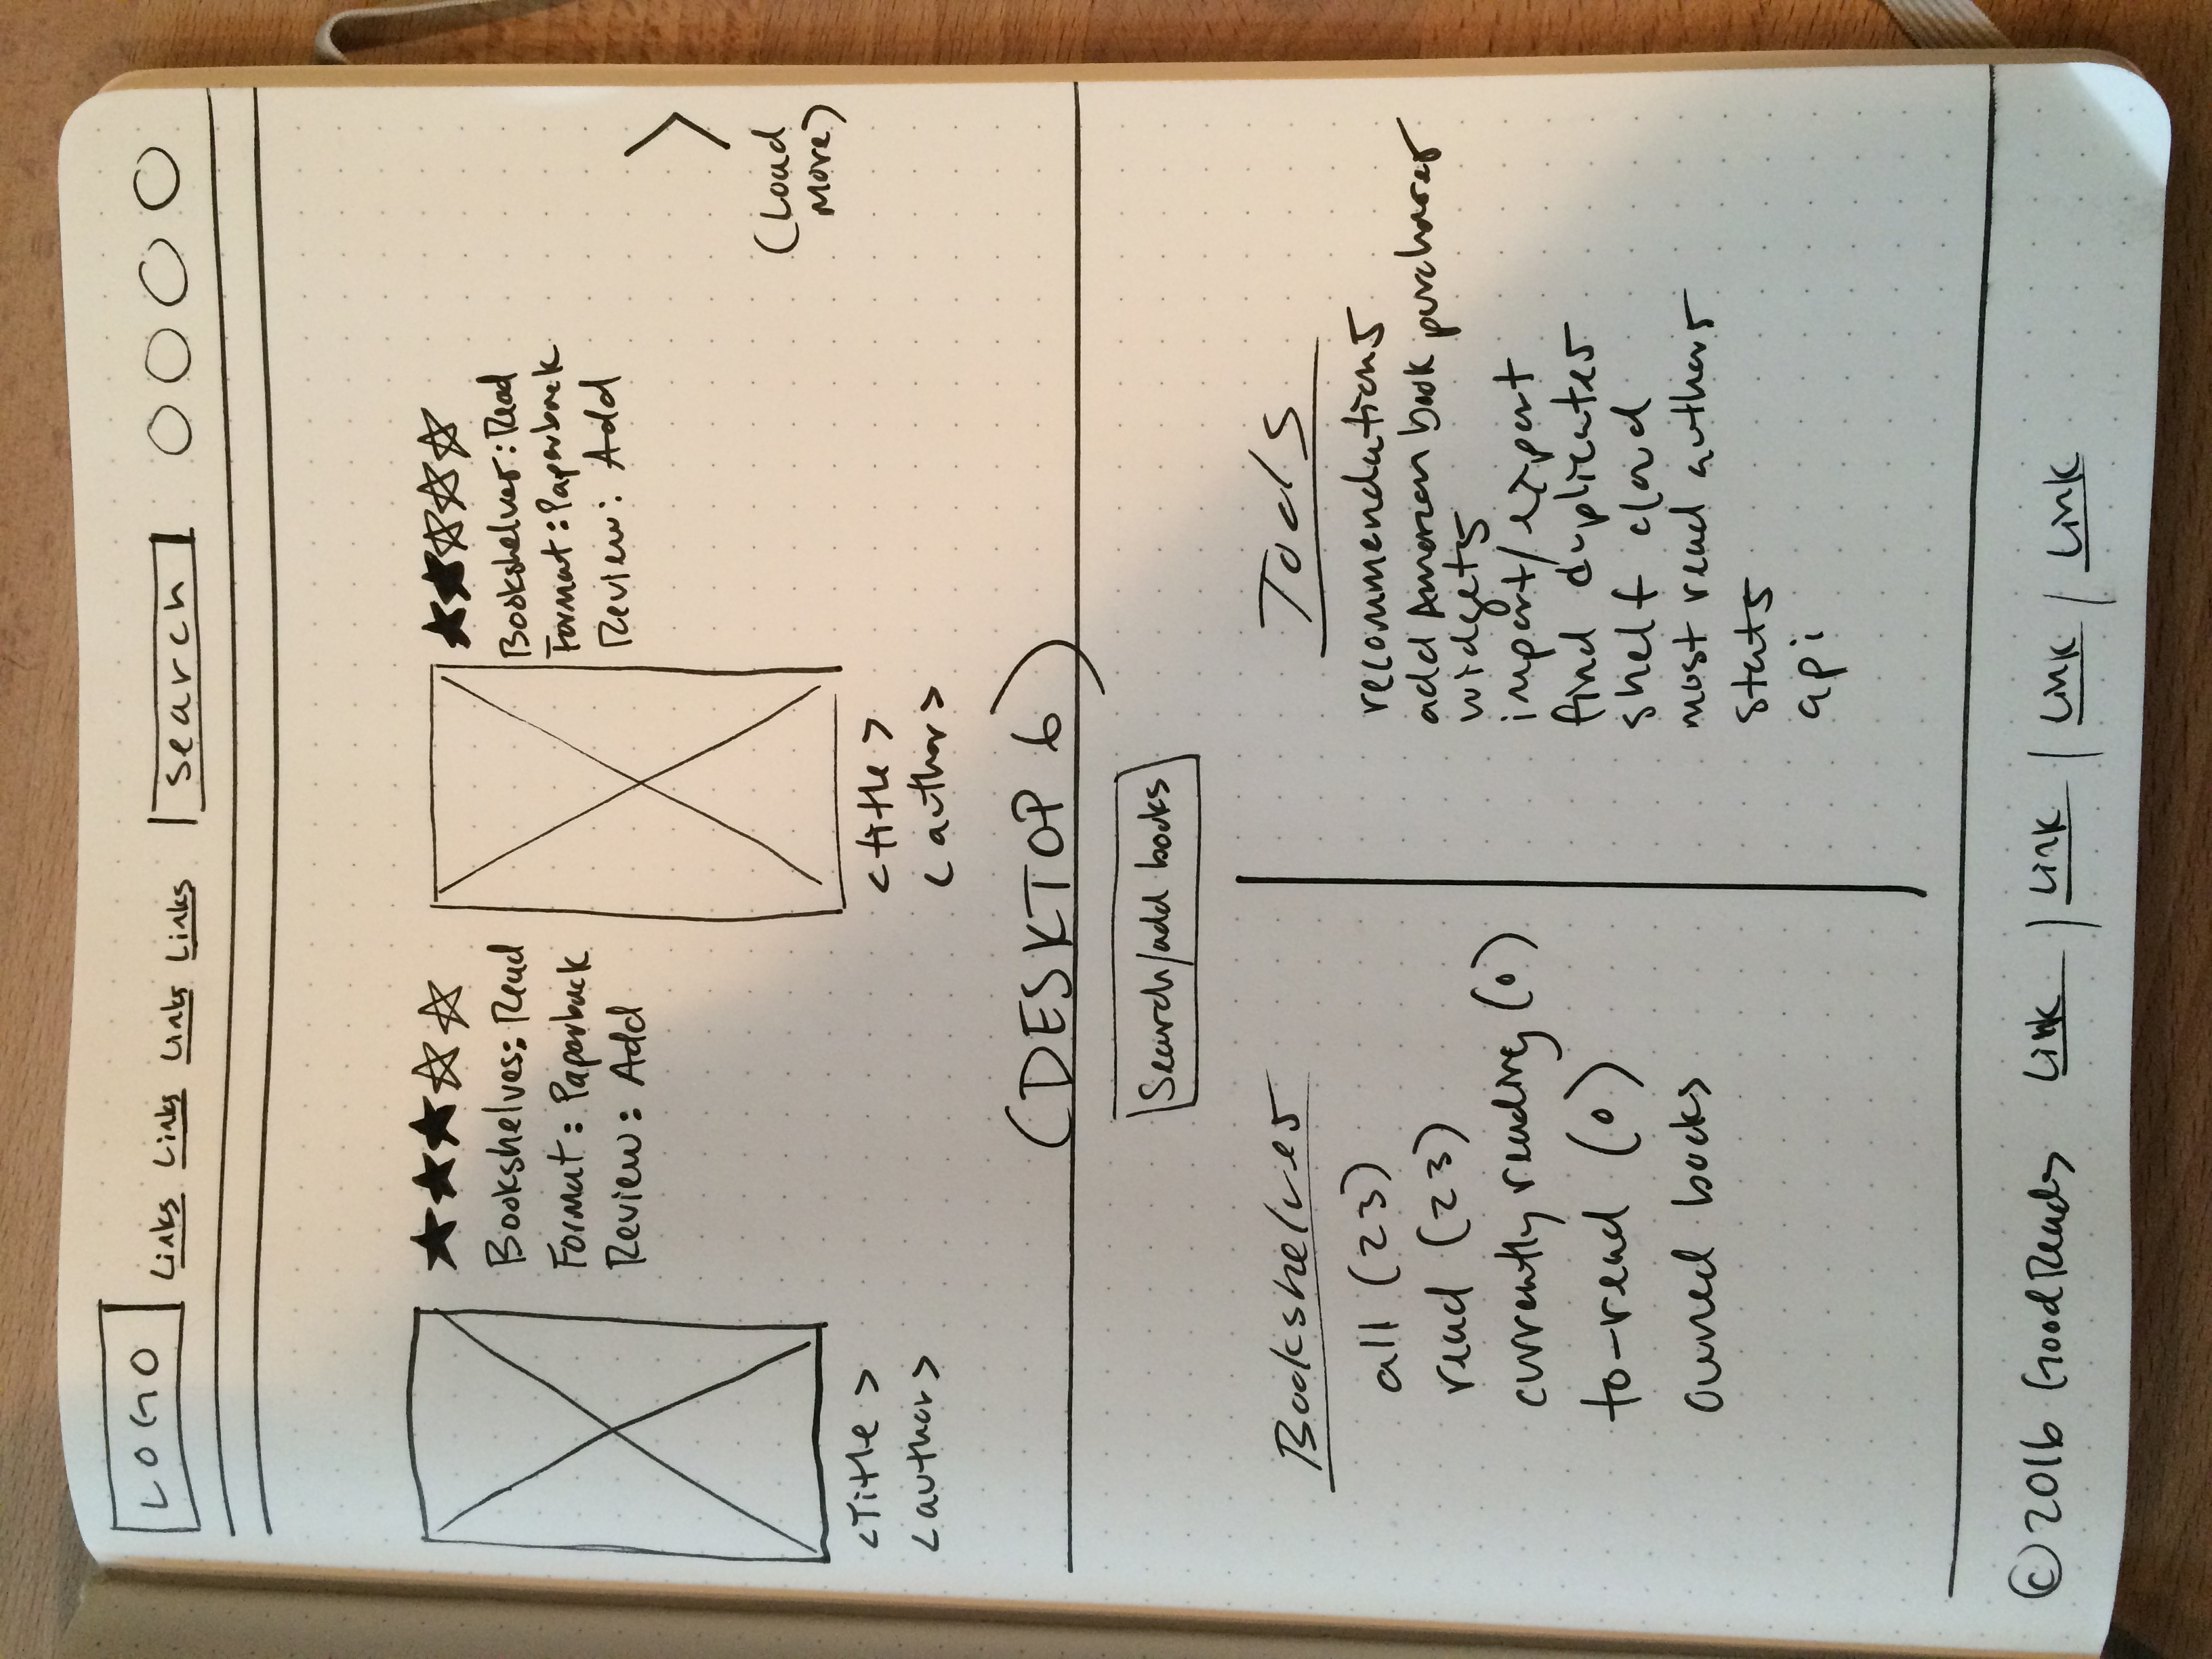 LOGO Links Links Links Links Search
Bookshelves: Read
Format: Paperback
Review: Add
<Title>
<author>
Bookshelves: Read
Format: Paperback
Review: Add
<title>
<author>
(Load
More)
(DESKTOP 6)
Search/add books
Bookshelves
all (23)
read (23)
currently reading (0)
to-read (0)
owned books
Tools
recommendations
add Amazon book purchases
widgets
import/export
find duplicates
shelf cloud
most read authors
stats
api
©2016 GoodReads Link | Link | Link | Link